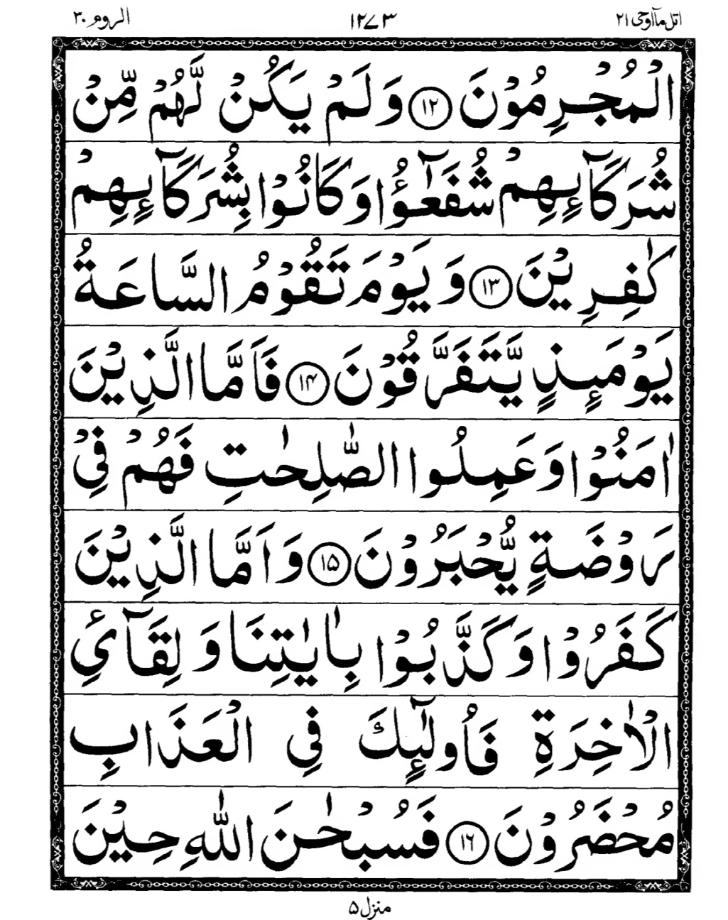 اتل مآ اوحی ۲۱ ۱۲۷۳ الروم ۳۰
الْمُجْرِمُوْنَ ۝۱۲ وَلَمْ يَكُنْ لَّهُمْ مِّنْ
شُرَكَآئِهِمْ شُفَعٰٓؤُا وَكَانُوْا بِشُرَكَآئِهِمْ
كٰفِرِيْنَ ۝۱۳ وَيَوْمَ تَقُوْمُ السَّاعَةُ
يَوْمَئِذٍ يَّتَفَرَّقُوْنَ ۝۱۴ فَاَمَّا الَّذِيْنَ
اٰمَنُوْا وَعَمِلُوا الصّٰلِحٰتِ فَهُمْ فِيْ
رَوْضَةٍ يُّحْبَرُوْنَ ۝۱۵ وَاَمَّا الَّذِيْنَ
كَفَرُوْا وَكَذَّبُوْا بِاٰيٰتِنَا وَلِقَآئِ
الْاٰخِرَةِ فَاُولٰٓئِكَ فِي الْعَذَابِ
مُحْضَرُوْنَ ۝۱۶ فَسُبْحٰنَ اللّٰهِ حِيْنَ
منزل ۵